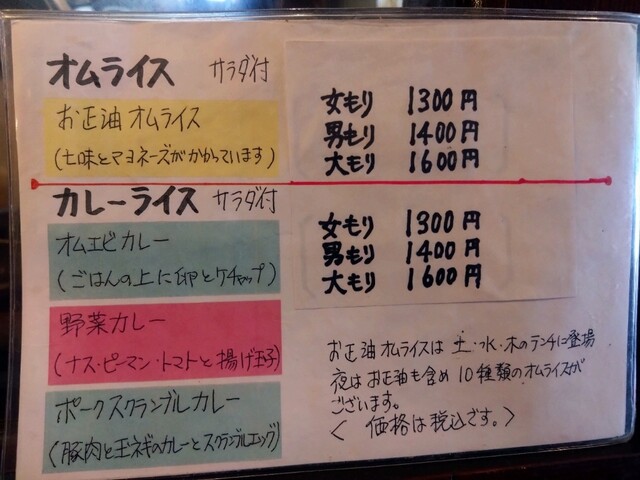 オムライス サラダ付
お正油オムライス
(七味とマヨネーズがかかっています)
女もり 1300円
男もり 1400円
大もり 1600円
カレーライス サラダ付
オムエビカレー
(ごはんの上に卵とケチャップ)
野菜カレー
(ナス・ピーマン・トマトと揚げ玉子)
ポークスクランブルカレー
(豚肉と玉ネギのカレーとスクランブルエッグ)
女もり 1300円
男もり 1400円
大もり 1600円
お正油オムライスは土・水・木のランチに登場
夜はお正油も含め10種類のオムライスが
ございます。
< 価格は税込です。>